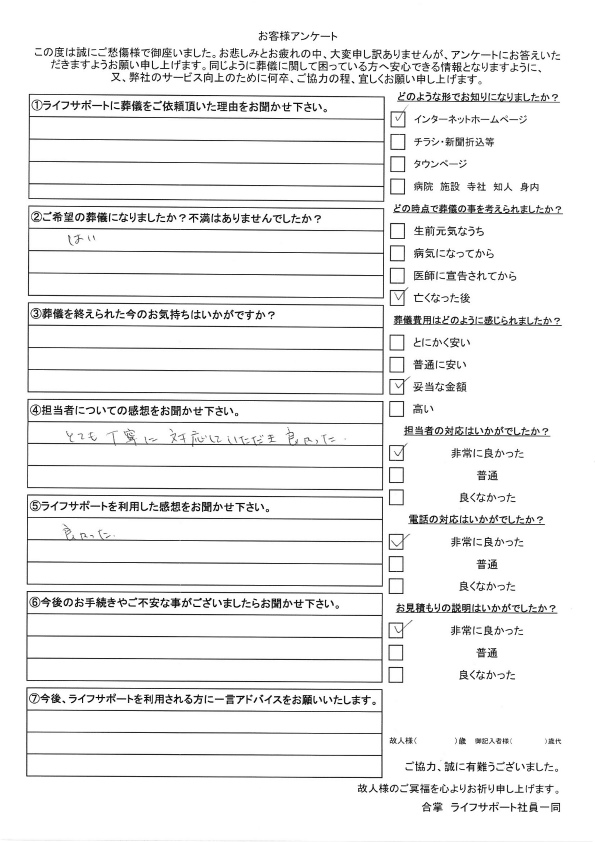 お客様アンケート
この度は誠にご愁傷様で御座いました。お悲しみとお疲れの中、大変申し訳ありませんが、アンケートにお答えいた
だきますようお願い申し上げます。同じように葬儀に関して困っている方へ安心できる情報となりますように、
又、弊社のサービス向上のために何卒、ご協力の程、宜しくお願い申し上げます。
①ライフサポートに葬儀をご依頼頂いた理由をお聞かせ下さい。
②ご希望の葬儀になりましたか?不満はありませんでしたか?
はい
③葬儀を終えられた今のお気持ちはいかがですか?
④担当者についての感想をお聞かせ下さい。
とても丁寧に対応していただき良かった.
⑤ライフサポートを利用した感想をお聞かせ下さい。
良かった.
⑥今後のお手続きやご不安な事がございましたらお聞かせ下さい。
⑦今後、ライフサポートを利用される方に一言アドバイスをお願いいたします。
どのような形でお知りになりましたか?
インターネットホームページ
チラシ・新聞折込等
タウンページ
病院 施設 寺社 知人 身内
どの時点で葬儀の事を考えられましたか?
生前元気なうち
病気になってから
医師に宣告されてから
亡くなった後
葬儀費用はどのように感じられましたか?
とにかく安い
普通に安い
妥当な金額
高い
担当者の対応はいかがでしたか?
非常に良かった
普通
良くなかった
電話の対応はいかがでしたか?
非常に良かった
普通
良くなかった
お見積もりの説明はいかがでしたか?
非常に良かった
普通
良くなかった
故人様( )歳 御記入者様( )歳代
ご協力、誠に有難うございました。
故人様のご冥福を心よりお祈り申し上げます。
合掌 ライフサポート社員一同